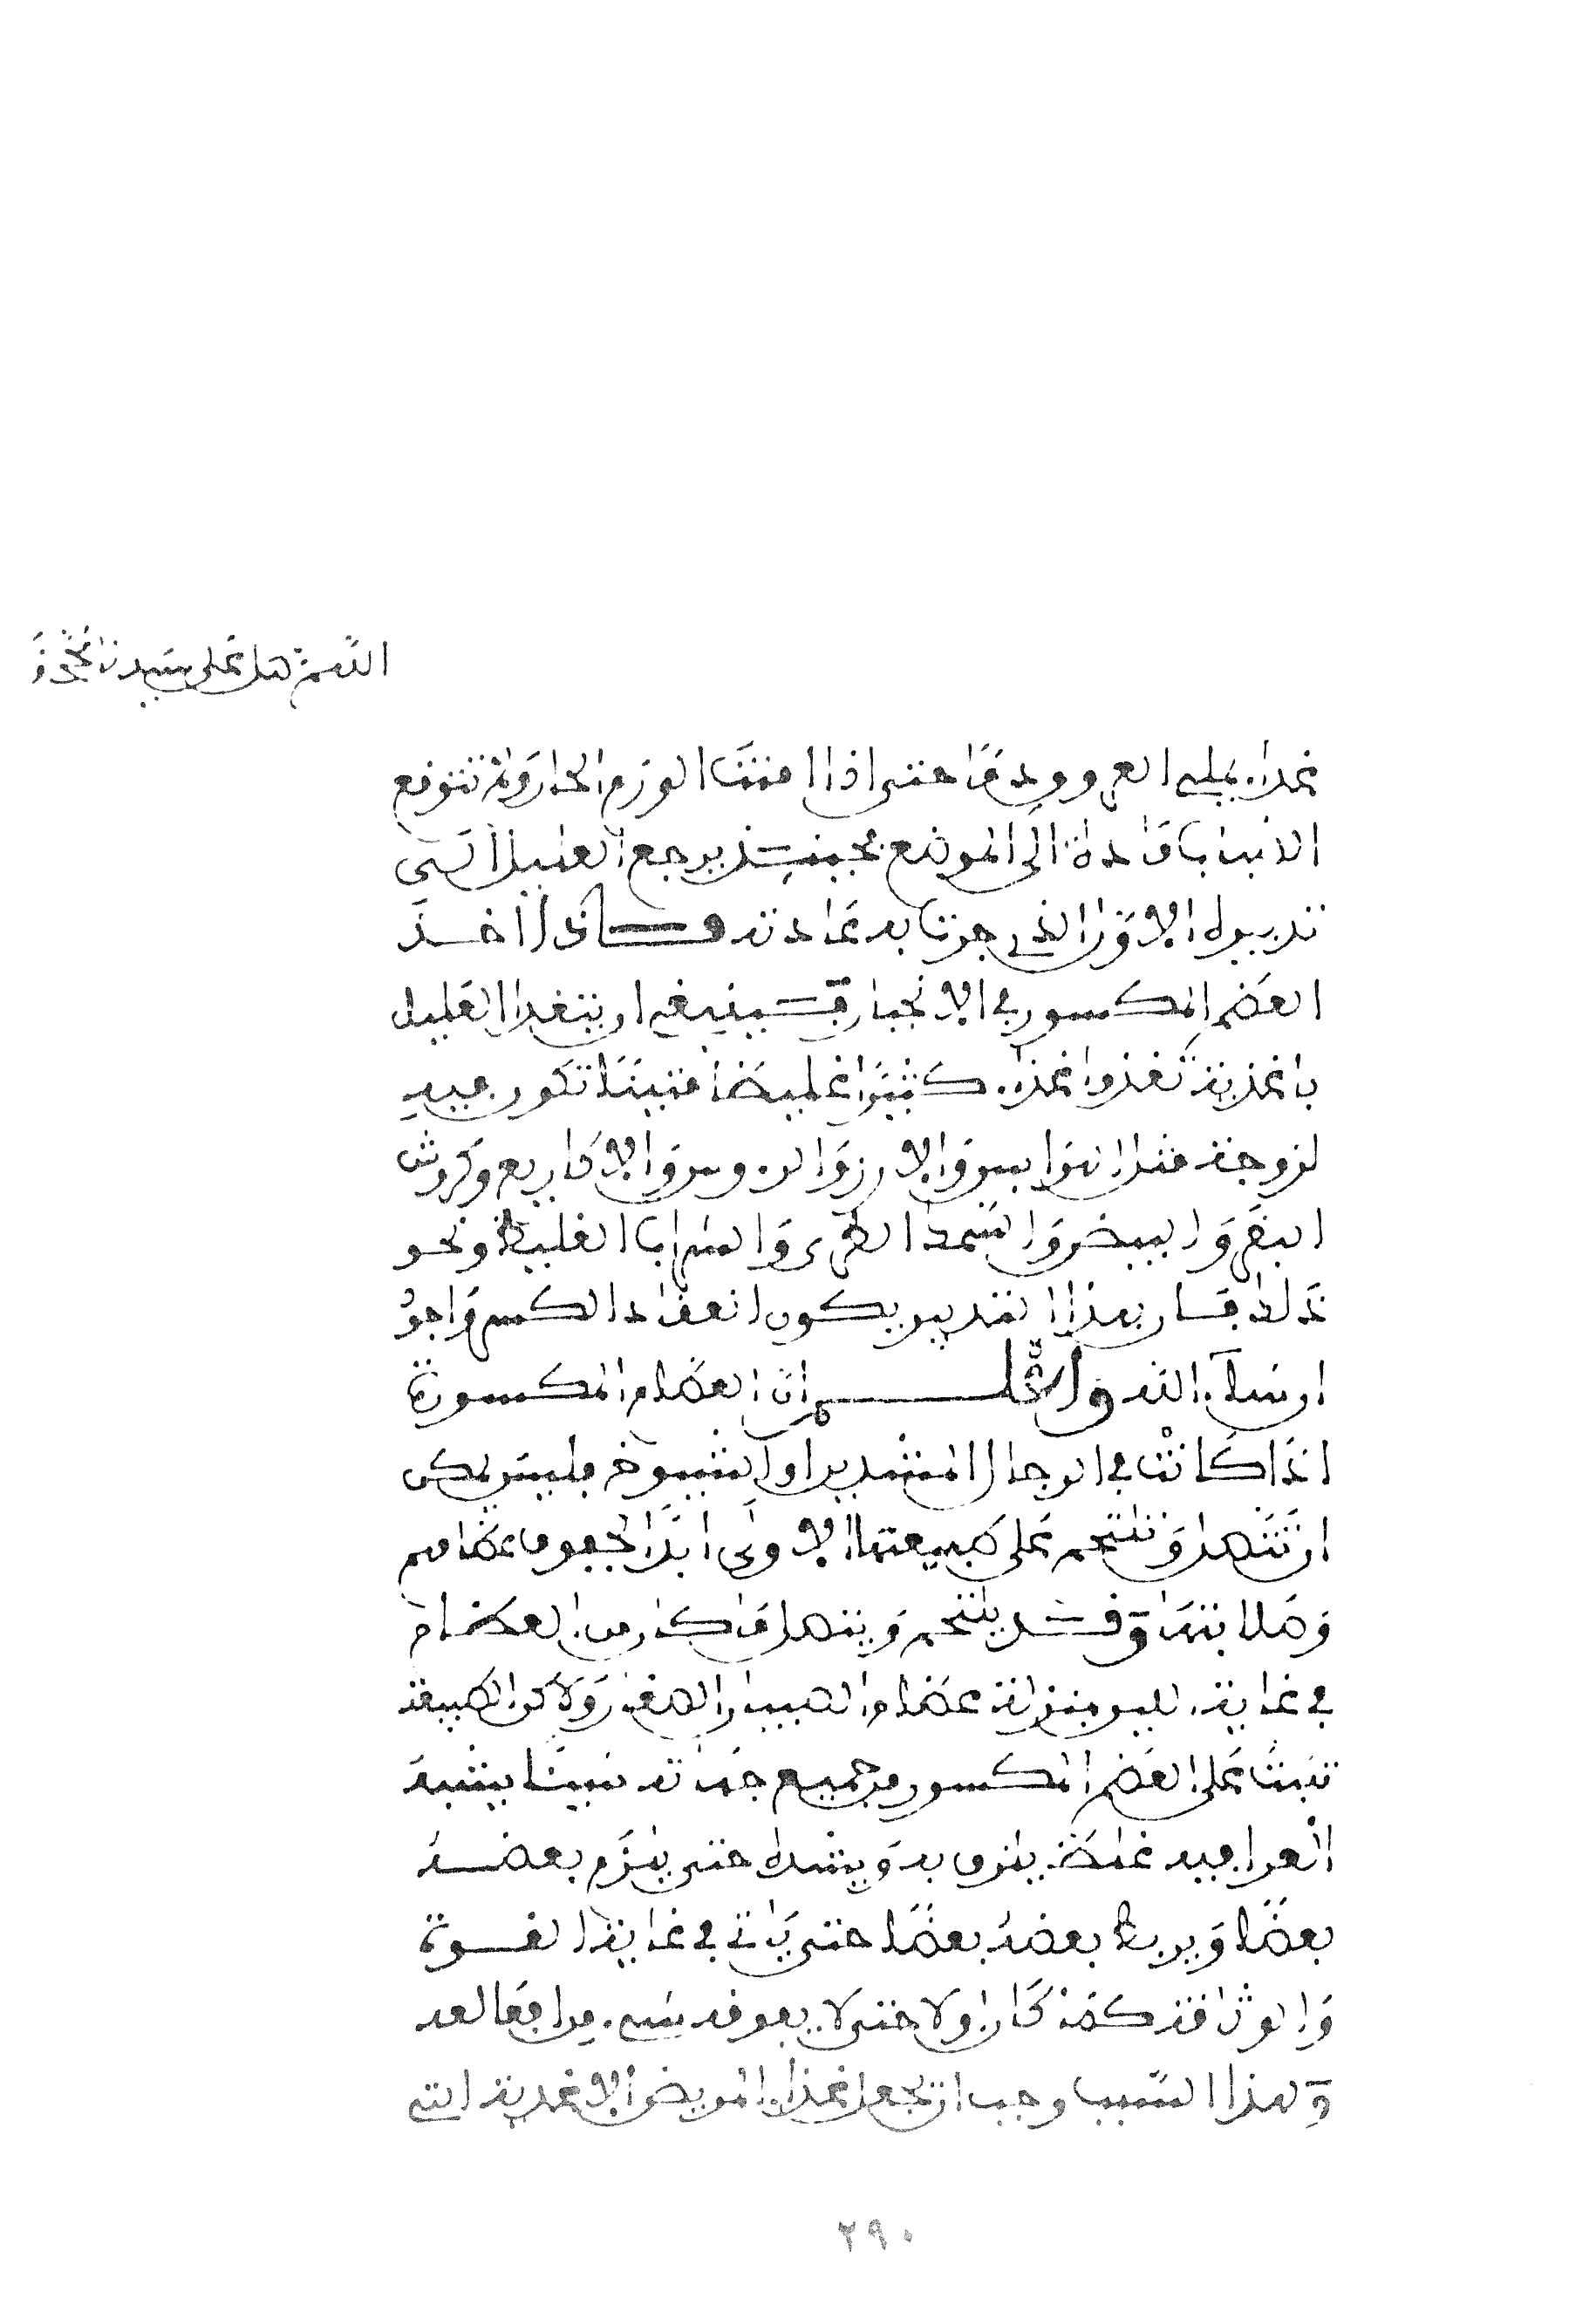 اللهم صل على سيدنا محمد و
غذاء العليل العروق يوما حتى اذا امنت الورم الحار ولم تتوقع
انصباب مادة الى الموضع فحينئذ يرجع العليل الى
تدبيره الاول الذي جرت به عادته فاذا اخذ
العضم المكسور في الانجبار فينبغي ان يتغذا العليل
باغذية تغذوا غذاء كثيرا غليضا متينا تكون فيه
لزوجة مثل الهرايس والارز والروس والاكارع وكروش
البقر والبيض والسمك الطري والشراب الغليظ ونحو
ذلك فان بهذا التدبير يكون انعقاد الكسر واجود
ان شاء الله واعلم ان العضام المكسورة
اذا كانت في الرجال المشدين او الشيوخ فليس يمكن
ان تتصل وتلتحم على طبيعتها الاولى ابدا لجفوف عضامهم
وصلابتها وقد يلتحم ويتصل ما كان من العضام
في غاية اللين بمنزلة عضام الصبيان الصغار ولاكن الطبيعة
تنبت على العضم المكسور من جميع جهاته شيئا يشبه
الغرا فيه غلظ يلزق به ويشده حتى يلزم بعضه
بعضا ويربط بعضه بعضا حتى ياتي في غاية القوة
والوثاقة كما كان اولا حتى لا يعوقه شيء من افعاله
ولهذا السبب وجب ان تجعل غذاء المريض الاغذية التي
٢٩٠